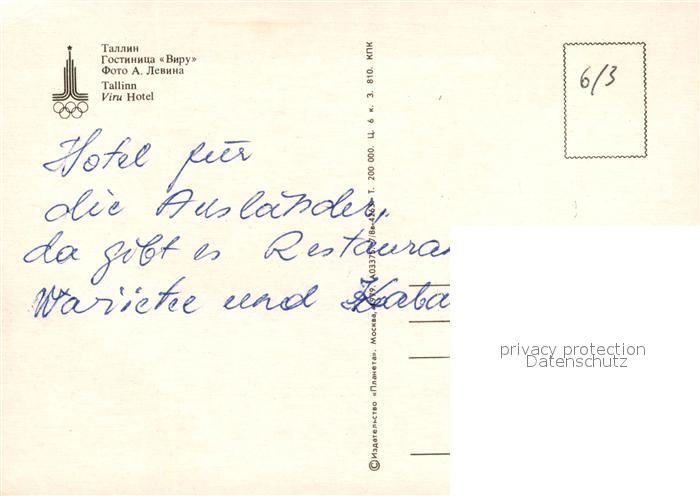 Таллин
Гостиница «Виру»
Фото А. Левина
Tallinn
Viru Hotel
6/3
Hotel für
die Ausländer,
da gibt es Restaura
Wariete und Kaba
©Издательство «Планета». Москва, 1979. Т. 200 000. Ц. 6 к. З. 810. КПК
privacy protection
Datenschutz